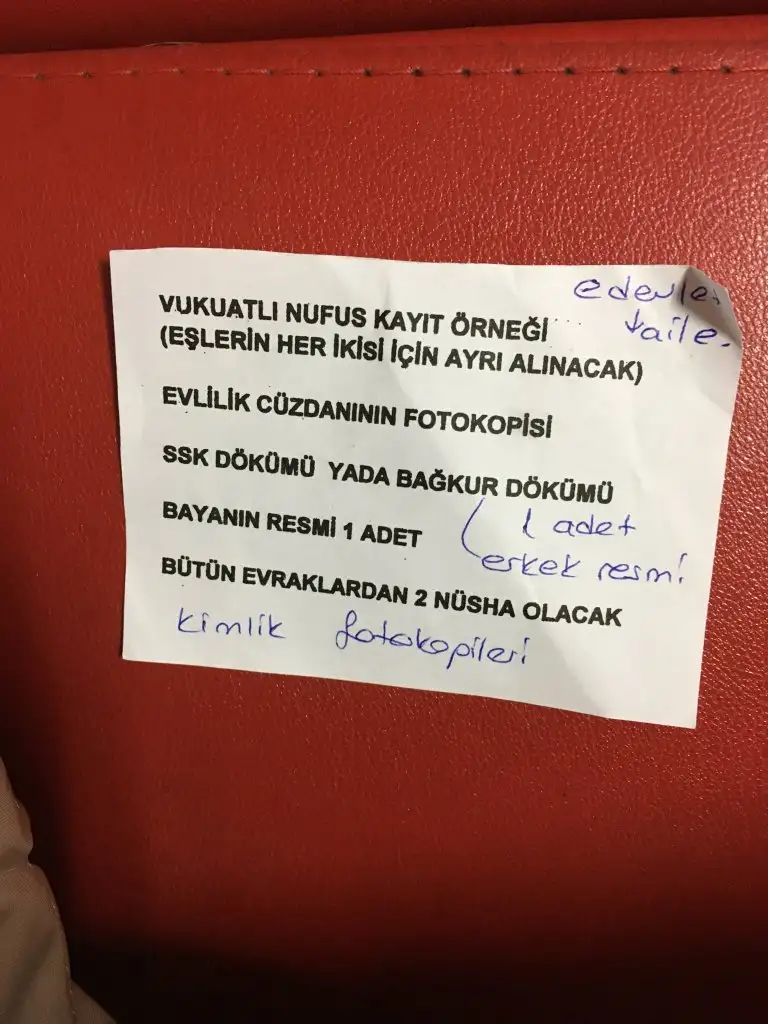 VUKUATLI NUFUS KAYIT ÖRNEĞİ
(EŞLERİN HER İKİSİ İÇİN AYRI ALINACAK)
EVLİLİK CÜZDANININ FOTOKOPİSİ
SSK DÖKÜMÜ YADA BAĞKUR DÖKÜMÜ
BAYANIN RESMİ 1 ADET
1 adet
erkek resmi
BÜTÜN EVRAKLARDAN 2 NÜSHA OLACAK
kimlik fotokopileri